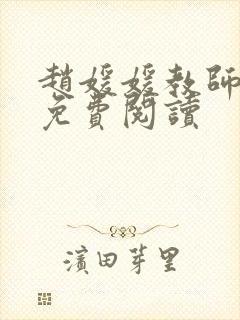 趙媛媛教師
免費閱讀
濱田芽里